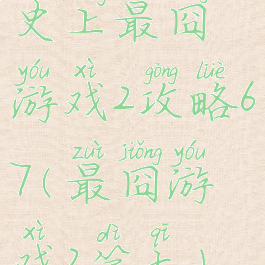 史上最囧
yóu xì gōng lüè
游戏2攻略6
zuì jiǒng yóu
7(最囧游
xì dì qī
戏2第七)